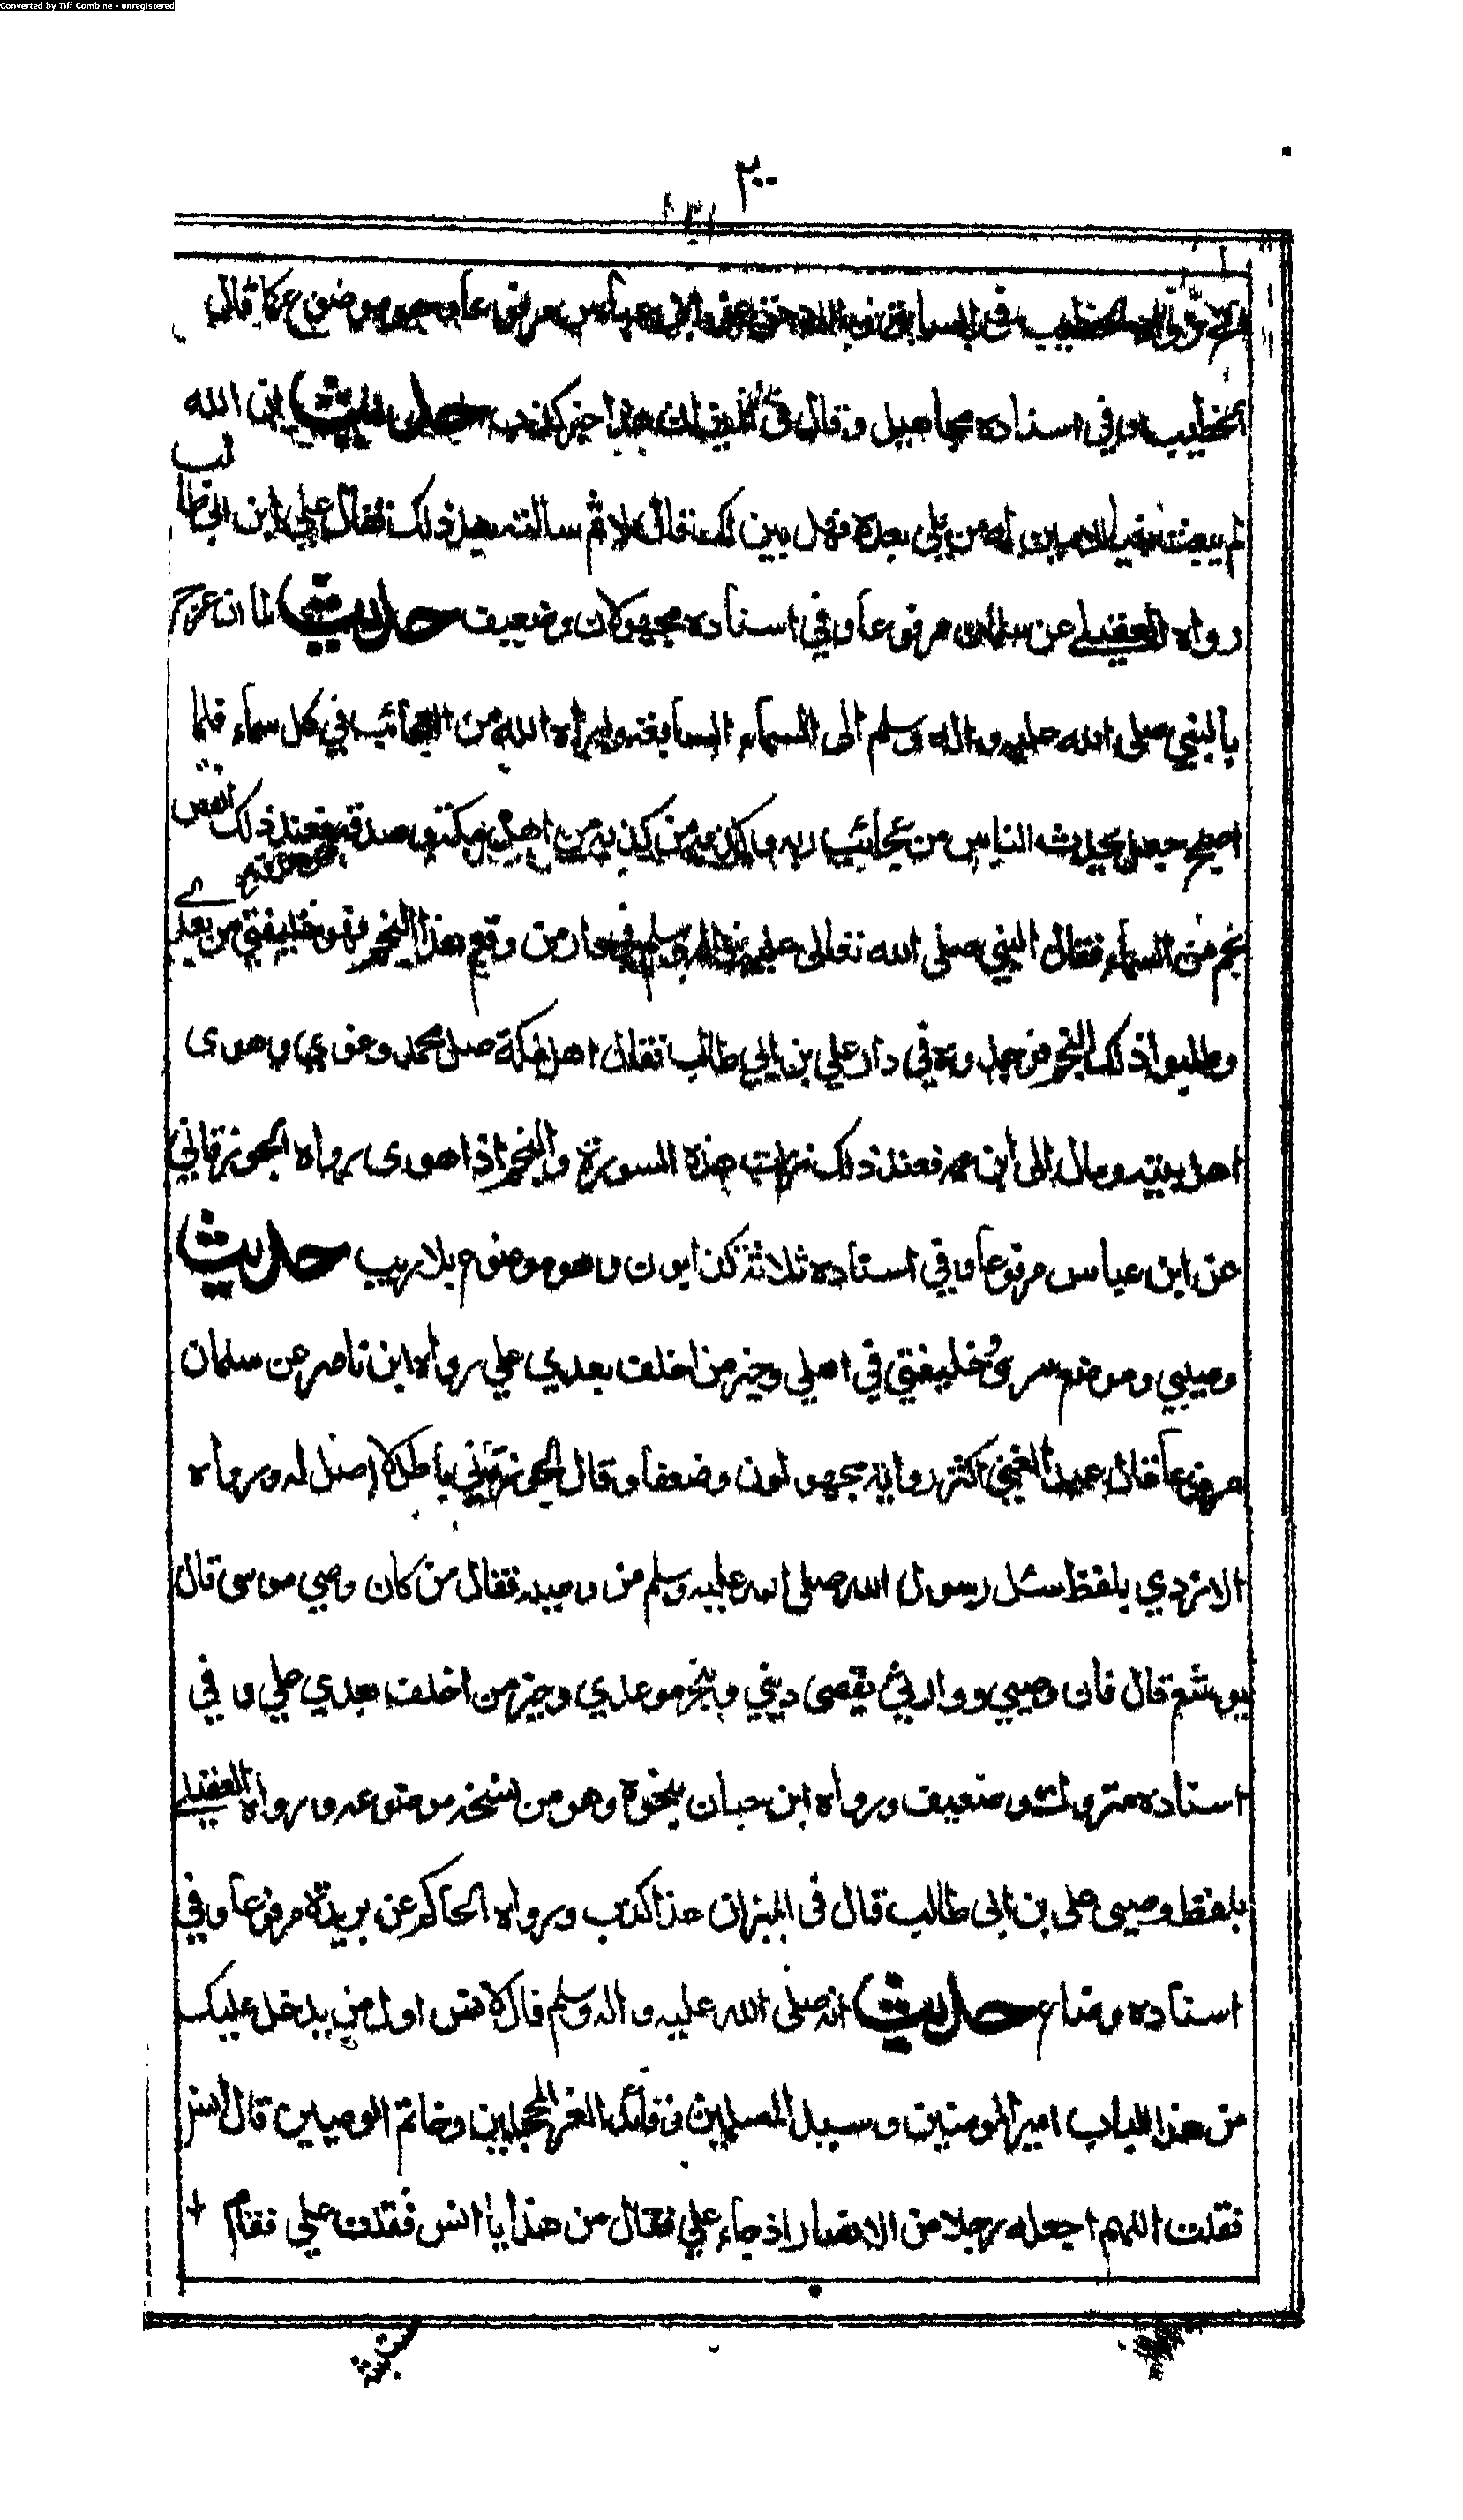 Converted by Tiff Combine - unregistered
٢٠٠
الخطيب في السابق عن ابن عباس مرفوعا وهو موضوع كما قال
الخطيب وفي اسناده مجاهيل وقال في هذا خبر كذب حديث ان الله
لم يبعث نبيا الا بين له من يلي بعده فهل بين لك فقال لا ثم سالته بعد ذلك فقال علي ابن ابي طالب
رواه العقيلي عن سلمان مرفوعا وفي اسناده مجهولان وضعيف حديث لما ان عرج
بالنبي صلى الله عليه واله وسلم الى السماء السابعة واراه الله من العجائب في كل سماء فلما
اصبح جعل يحدث الناس من عجائب ربه وكذبه من كذبه من اهل مكة وصدقه من صدقه فعند ذلك انقض
نجم من السماء فقال النبي صلى الله تعالى عليه واله وسلم في دار من وقع هذا النجم فهو خليفتي من بعدي
وطلبوا ذلك النجم فوجدوه في دار علي بن ابي طالب فقال اهل مكة ضل محمد وغوى وهوى
اهل بيته ومال الى ابن عمه فعند ذلك نزلت هذه السورة والنجم اذا هوى رواه الجوزقاني
عن ابن عباس مرفوعا وفي اسناده ثلاثة كذابون وهو موضوع بلا ريب حديث
وصيي وموضع سري وخليفتي في اهلي وخير من اخلف بعدي علي رواه ابن ناصر عن سلمان
مرفوعا قال عبد الغني اكثر رواية مجهولون وضعفا وقال الجوزقاني باطل لا اصل له ورواه
الازدي بلفظ سئل رسول الله صلى الله عليه وسلم من وصيه فقال من كان وصي موسى قال
يوشع قال فان وصيي ووارثي يقضى ديني وينجز موعدي وخير من اخلف بعدي علي وفي
اسناده متروك وضعيف ورواه ابن حبان بنحوه وهو من نسخه موضوعه ورواه العقيلي
بلفظ وصيي علي بن ابي طالب قال في الميزان هذا كذب ورواه الحاكم عن بريدة مرفوعا وفي
اسناده وضاع حديث انه صلى الله عليه واله وسلم قال لانس اول من يدخل عليك
من هذا الباب امير المومنين وسيد المسلمين وقائد الغر المحجلين وخاتم الوصيين قال انس
فقلت اللهم اجعله رجلا من الانصار اذ جاء علي فقال من هذا يا انس فقلت علي فقام